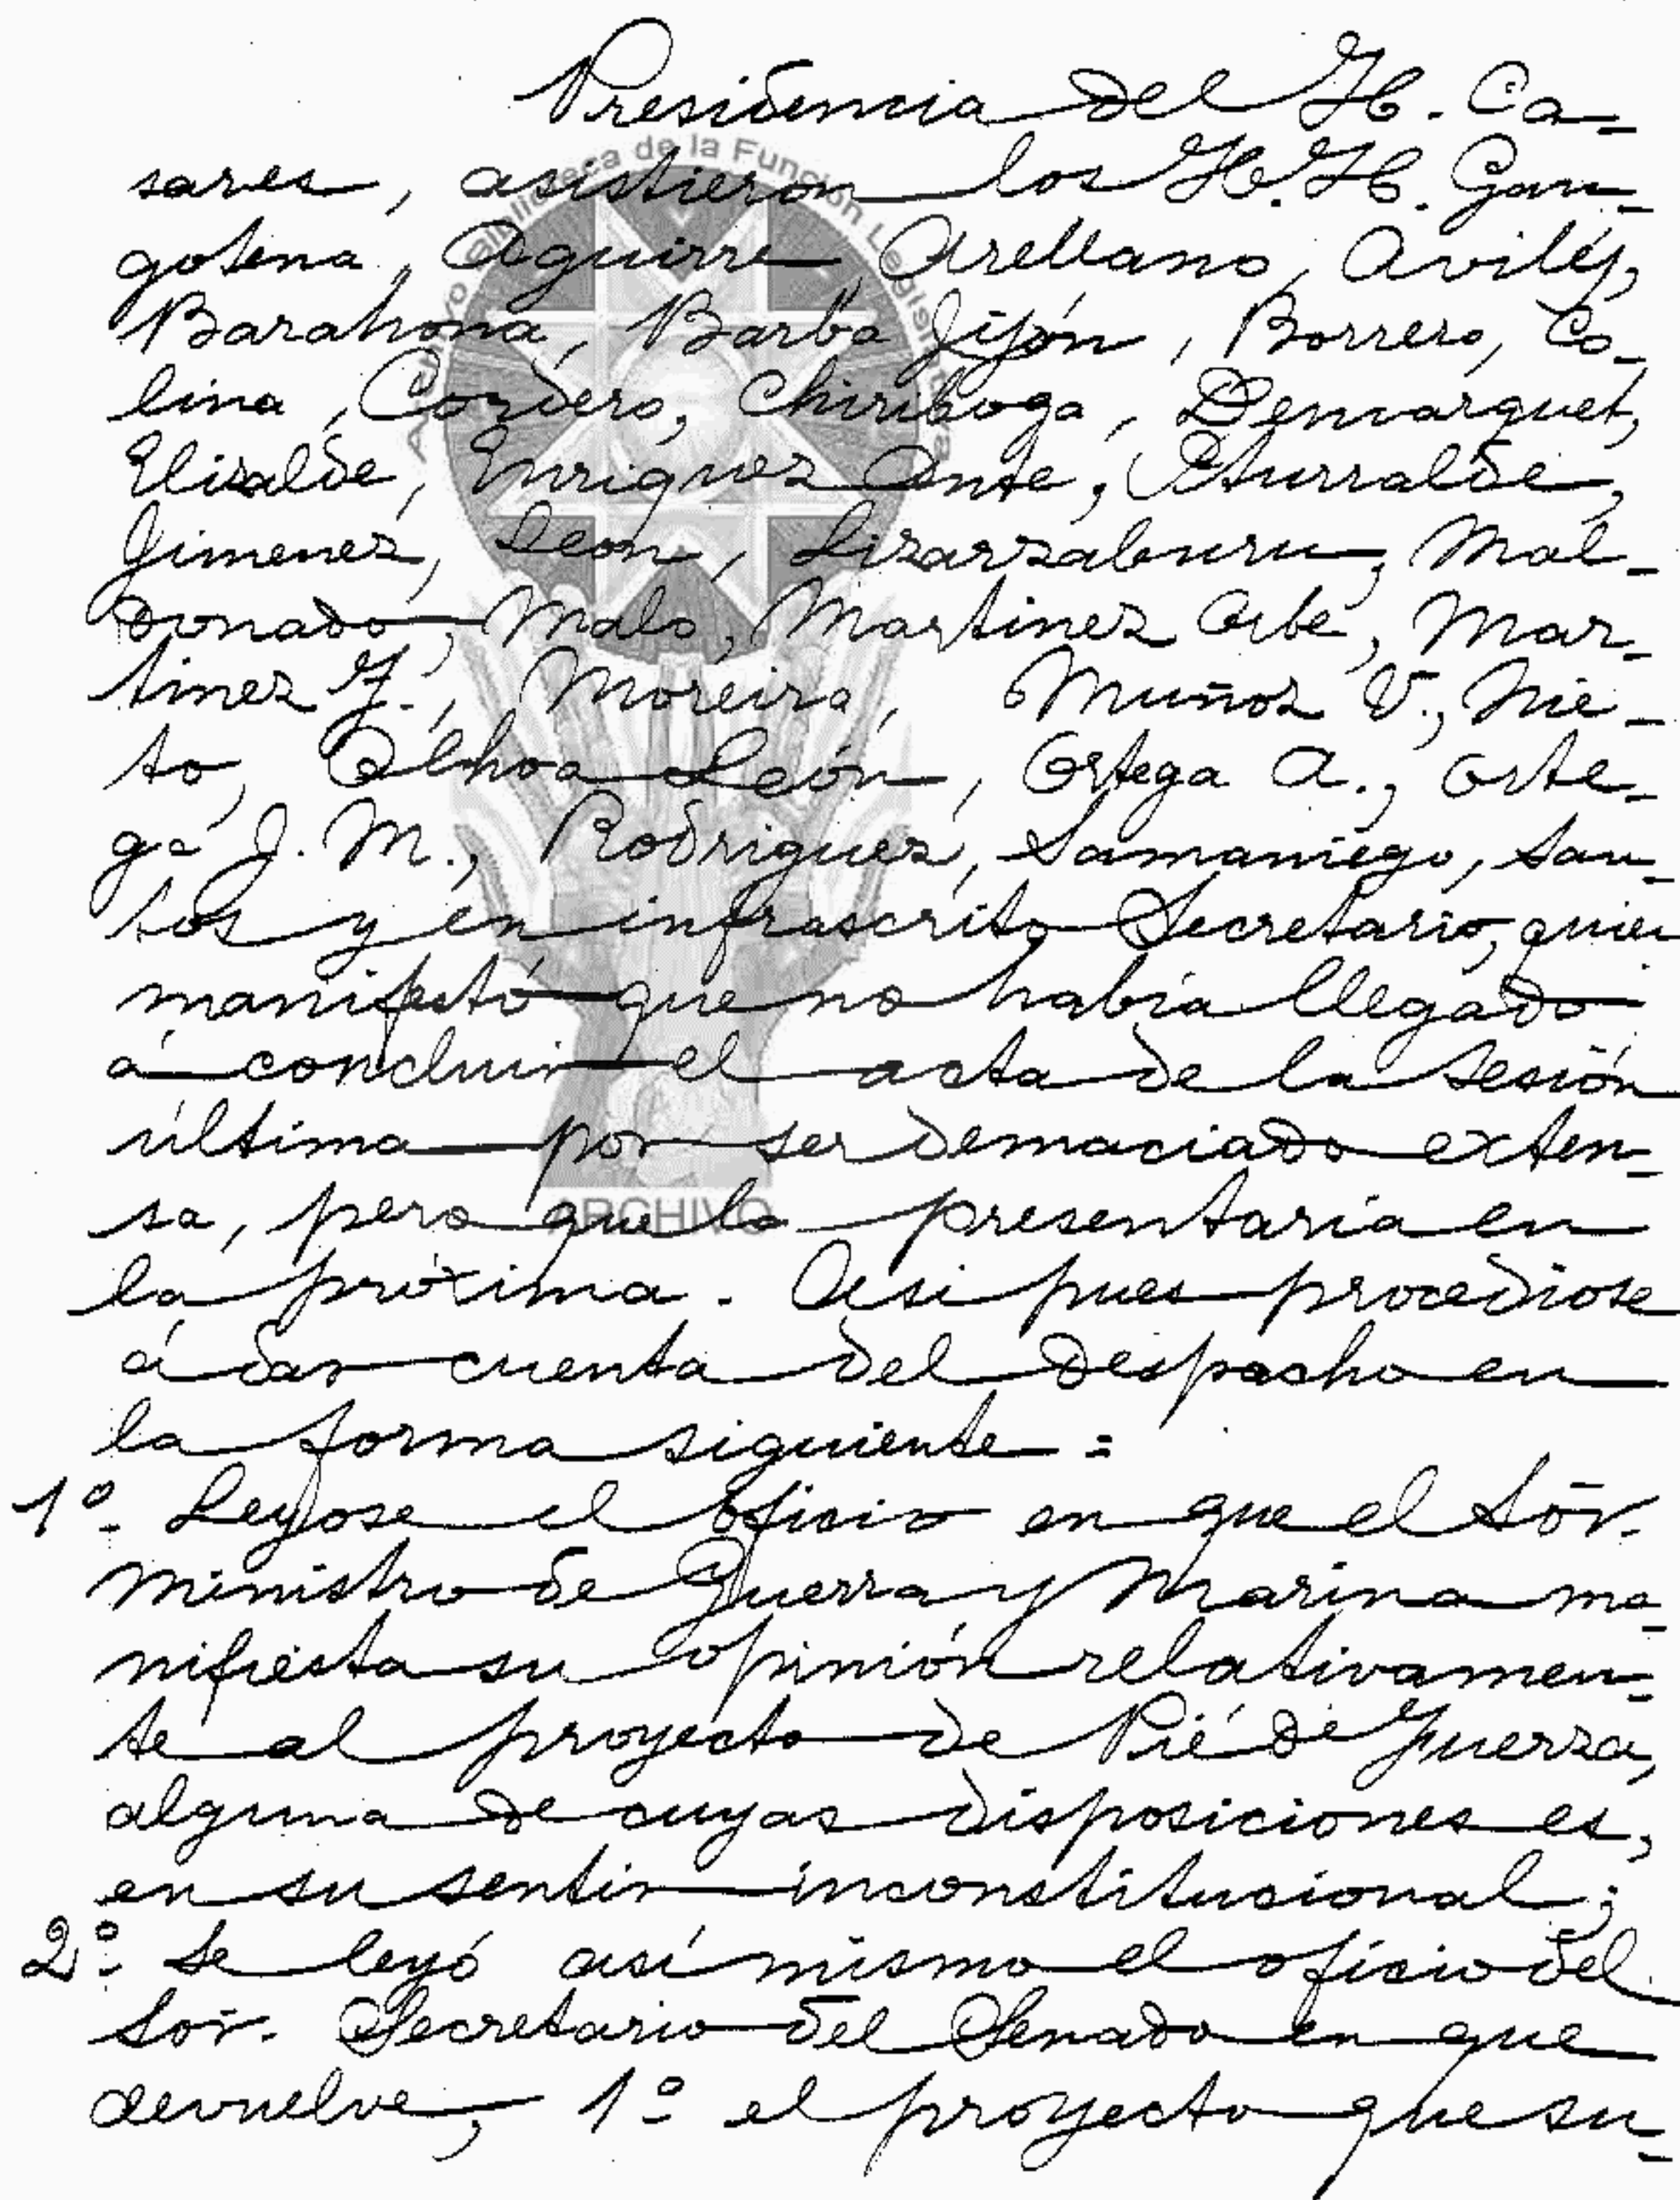 Presidencia del H. Ca-
sares, asistieron los H.H. Gan-
gotena, Aguirre, Arellano, Avilés,
Barahona, Barba Jijón, Borrero, Co-
lina, Cordero, Chiriboga, Demarquet,
Elizalde, Enriquez Ante, Iturralde,
Jimenez, Leon, Lizarzaburu, Mal-
donado, Malo, Martinez Orbe, Mar-
tinez F., Moreira, Muñoz V., Nie-
to, Olhoa León, Ortega A., Orte-
ga J. M., Rodriguez, Samaniego, San-
tos y en infrascrito Secretario, quien
manifestó que no había llegado
á concluir el acta de la sesión
última por ser demaciado exten-
sa, pero que la presentaría en
la próxima. Asi pues procediose
á dar cuenta del despacho en
la forma siguiente =
1º- Leyose el oficio en que el Sõr.
Ministro de Guerra y Marina ma-
nifiesta su opinión relativamen-
te al proyecto de Pié de Guerra,
alguna de cuyas disposiciones es,
en su sentir inconstitucional;
2º- Se leyó así mismo el oficio del
Sõr. Secretario del Senado en que
devuelve, 1º el proyecto que su-
Archivo Biblioteca de la Función Legislativa
ARCHIVO